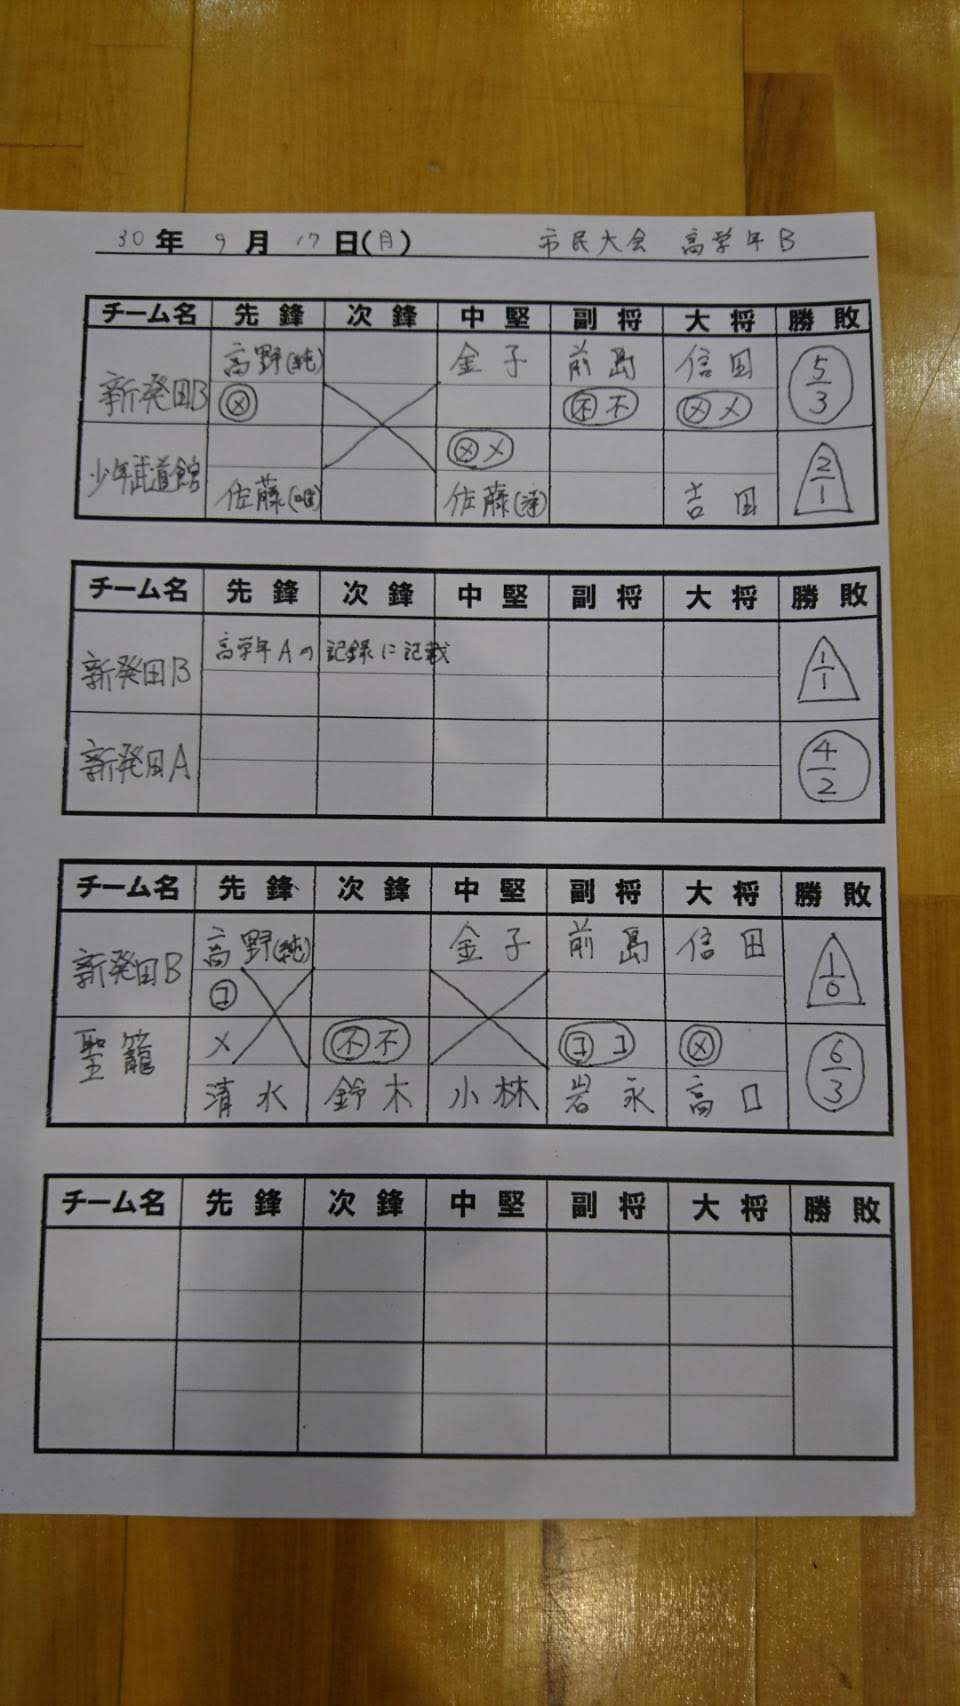 30年 9月 17日(月) 市民大会 高学年B
チーム名 先鋒 次鋒 中堅 副将 大将 勝敗
新発田B 高野(純) 金子 前島 信田 5/3
メ 不不 メメ
少年武道館 メメ 2/1
佐藤 佐藤 吉田
チーム名 先鋒 次鋒 中堅 副将 大将 勝敗
新発田B 高学年Aの記録に記載 1/1
新発田A 4/2
チーム名 先鋒 次鋒 中堅 副将 大将 勝敗
新発田B 高野(純) 金子 前島 信田 1/0
コ
聖籠 メ 不不 ココ メ 6/3
清水 鈴木 小林 岩永 高口
チーム名 先鋒 次鋒 中堅 副将 大将 勝敗